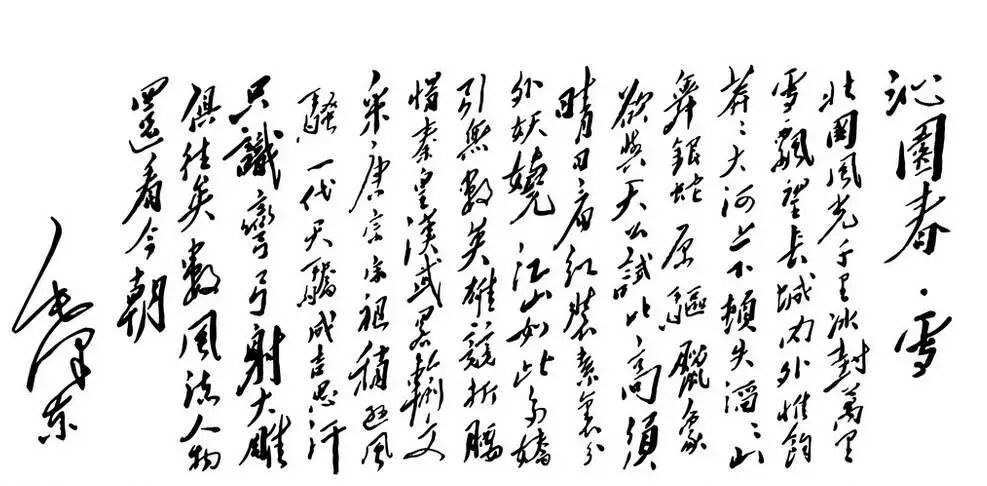 沁園春·雪
北國風光千里冰封萬里
雪飄望長城內外惟餘
莽〻大河上下頓失滔〻山
舞銀蛇原驅臘象
欲與天公試比高須
晴日看紅裝素裹分
外妖嬈江山如此多嬌
引無數英雄競折腰
惜秦皇漢武畧輸文
采唐宗宋祖稍遜風
騷一代天驕成吉思汗
只識彎弓射大雕
俱往矣數風流人物
還看今朝
毛澤東